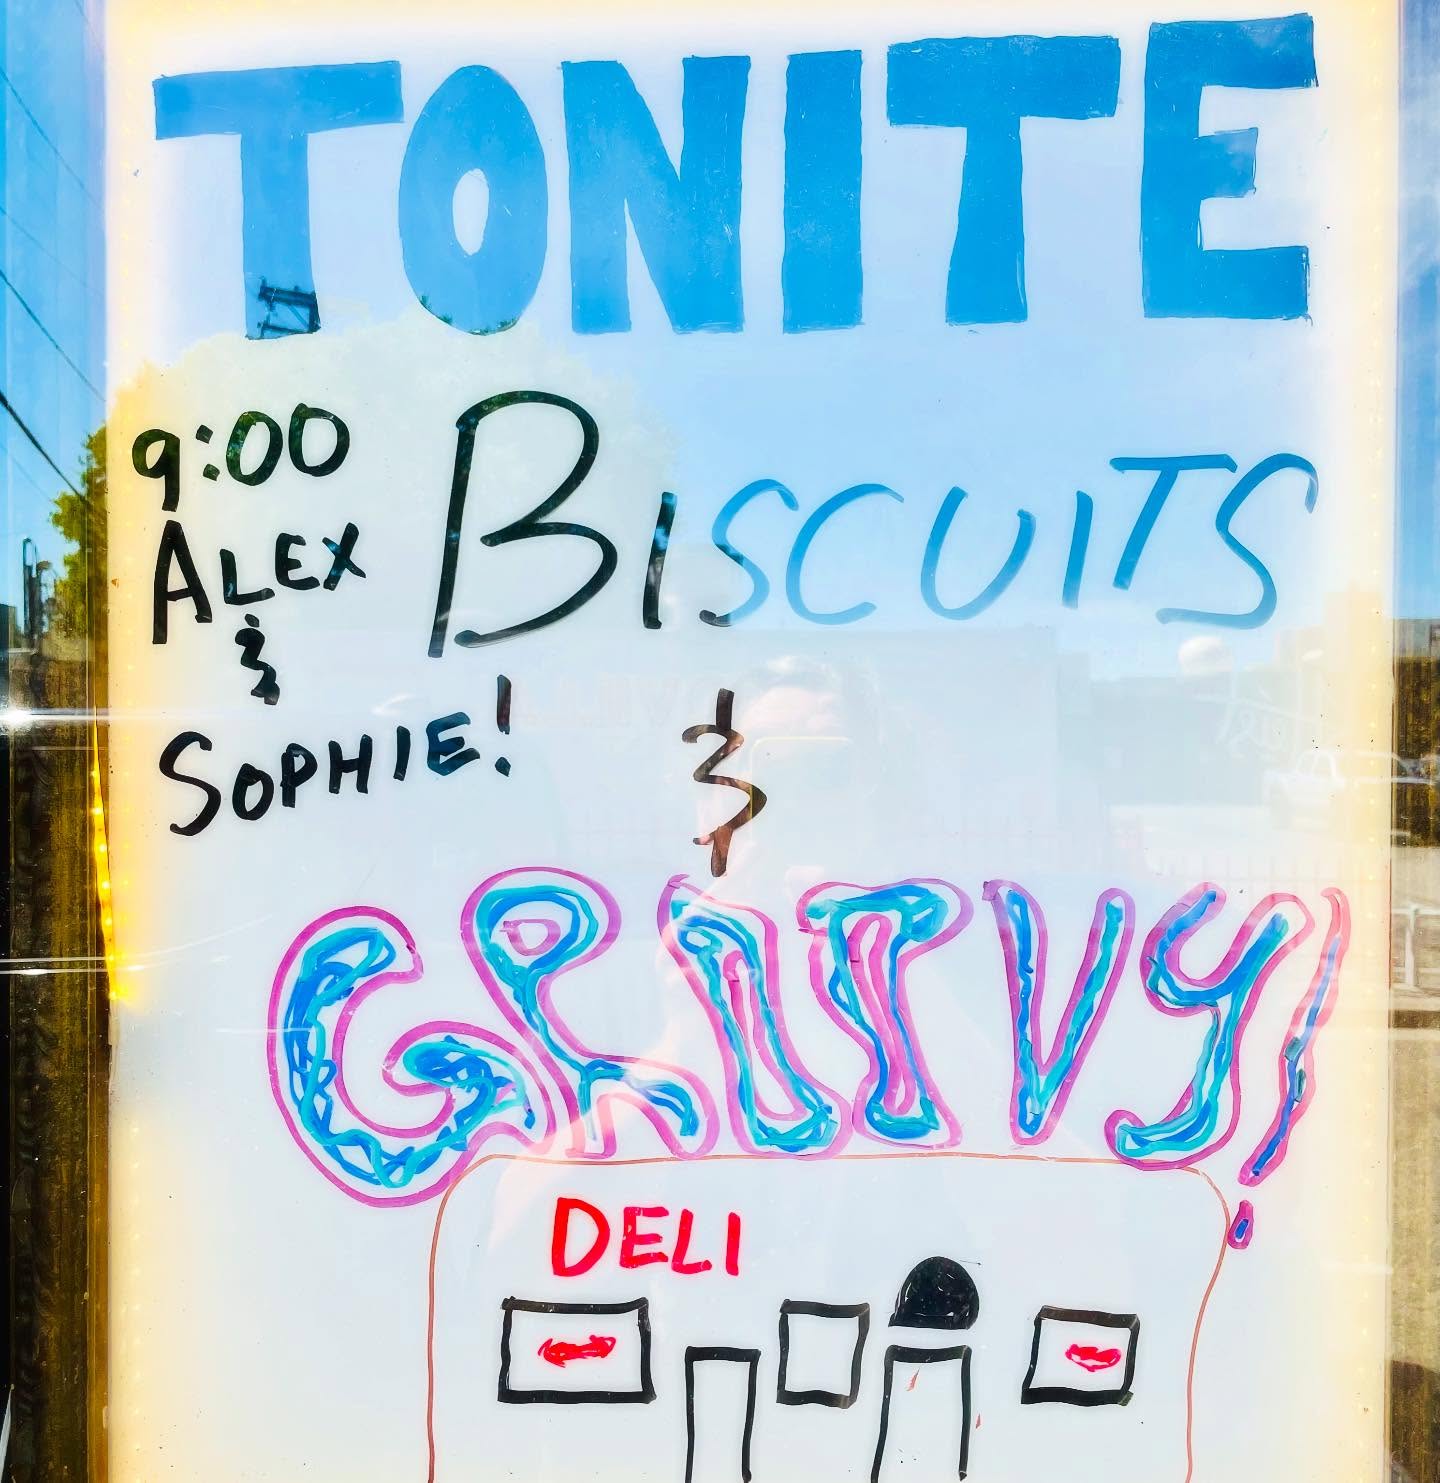 TONITE
9:00
ALEX
&
SOPHIE!
BISCUITS
&
GRAVY!
DELI